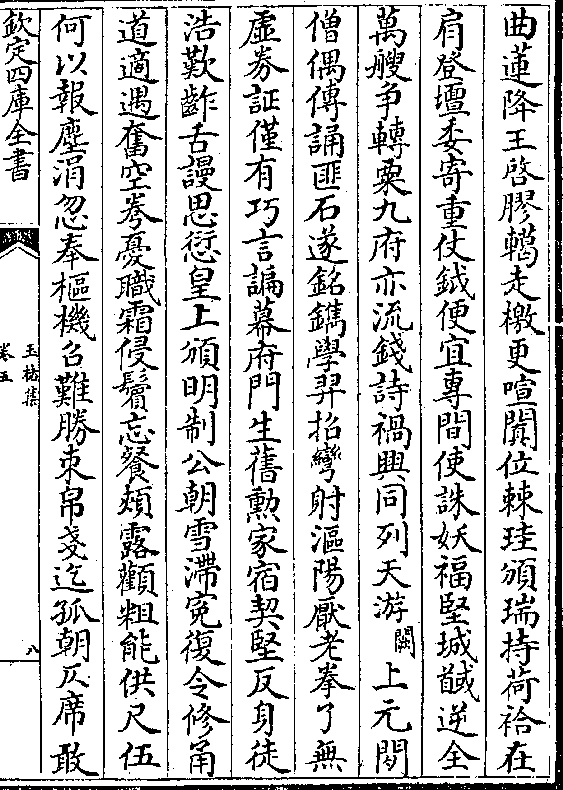 曲蓮降王啓膠轕走檄更喧闐位棘珪頒瑞持荷袷在
肩登壇委寄重仗鉞便宜專間使誅妖福堅城馘逆全
萬艘争轉粟九府亦流錢詩禍興同列天游闕上元閲
僧偶傳誦匪石遂銘鐫學羿招彎射漚陽厭老拳了無
虛券証僅有巧言諞幕府門生舊勲家宿契堅反身徒
浩歎齚舌謾思愆皇上頒明制公朝雪滯寃復令修甬
道適遇奮空拳憂職霜侵鬢忘餐頰露顴粗能供尺伍
何以報塵涓忽奉樞機召難勝束帛戔迄孤朝仄席敢
欽定四庫全書
玉楮集
卷五
八